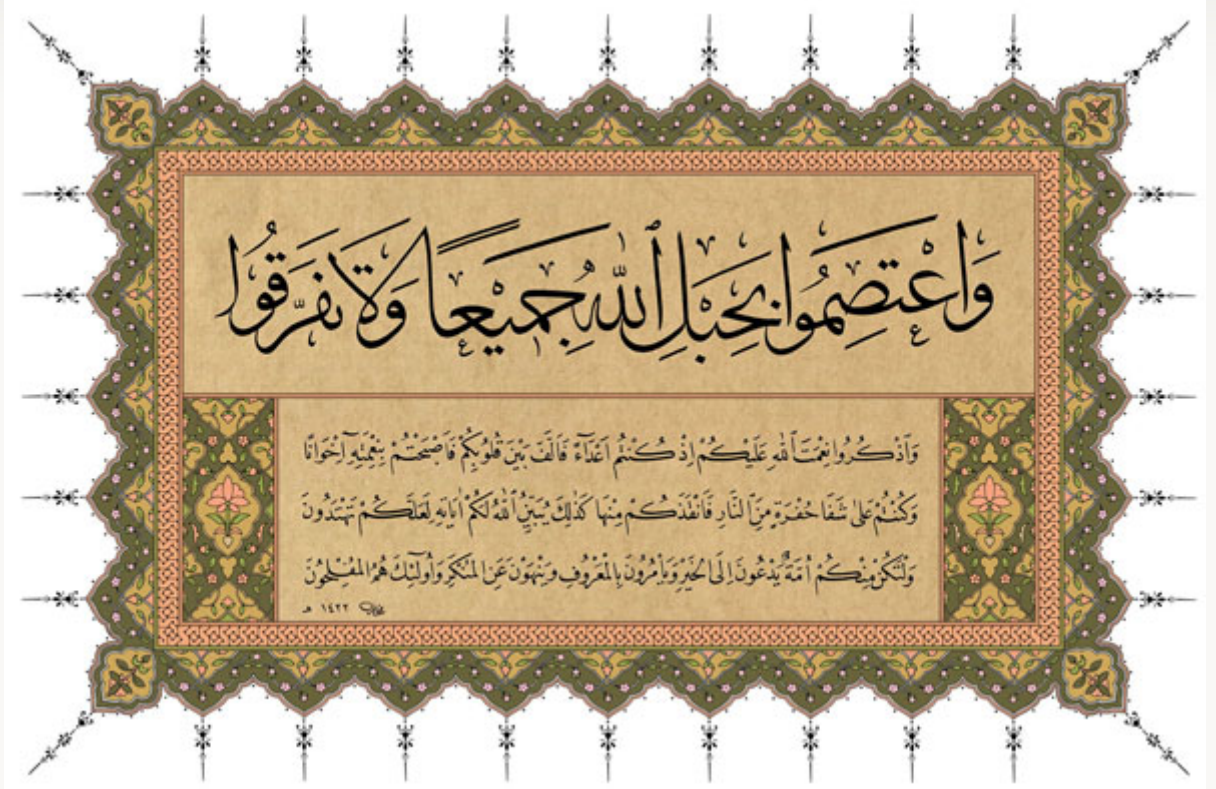 وَاعْتَصِمُوا بِحَبْلِ اللّٰهِ جَمِيْعًا وَلَا تَفَرَّقُوا
وَاذْكُرُوا نِعْمَتَ اللّٰهِ عَلَيْكُمْ اِذْ كُنْتُمْ اَعْدَاءً فَاَلَّفَ بَيْنَ قُلُوبِكُمْ فَاَصْبَحْتُمْ بِنِعْمَتِهِ اِخْوَانًا
وَكُنْتُمْ عَلٰى شَفَا حُفْرَةٍ مِنَ النَّارِ فَاَنْقَذَكُمْ مِنْهَا كَذٰلِكَ يُبَيِّنُ اللّٰهُ لَكُمْ اٰيَاتِهِ لَعَلَّكُمْ تَهْتَدُونَ
وَلْتَكُنْ مِنْكُمْ اُمَّةٌ يَدْعُونَ اِلَى الْخَيْرِ وَيَأْمُرُونَ بِالْمَعْرُوفِ وَيَنْهَوْنَ عَنِ الْمُنْكَرِ وَاُولٰئِكَ هُمُ الْمُفْلِحُونَ
١٤٢٢ هـ